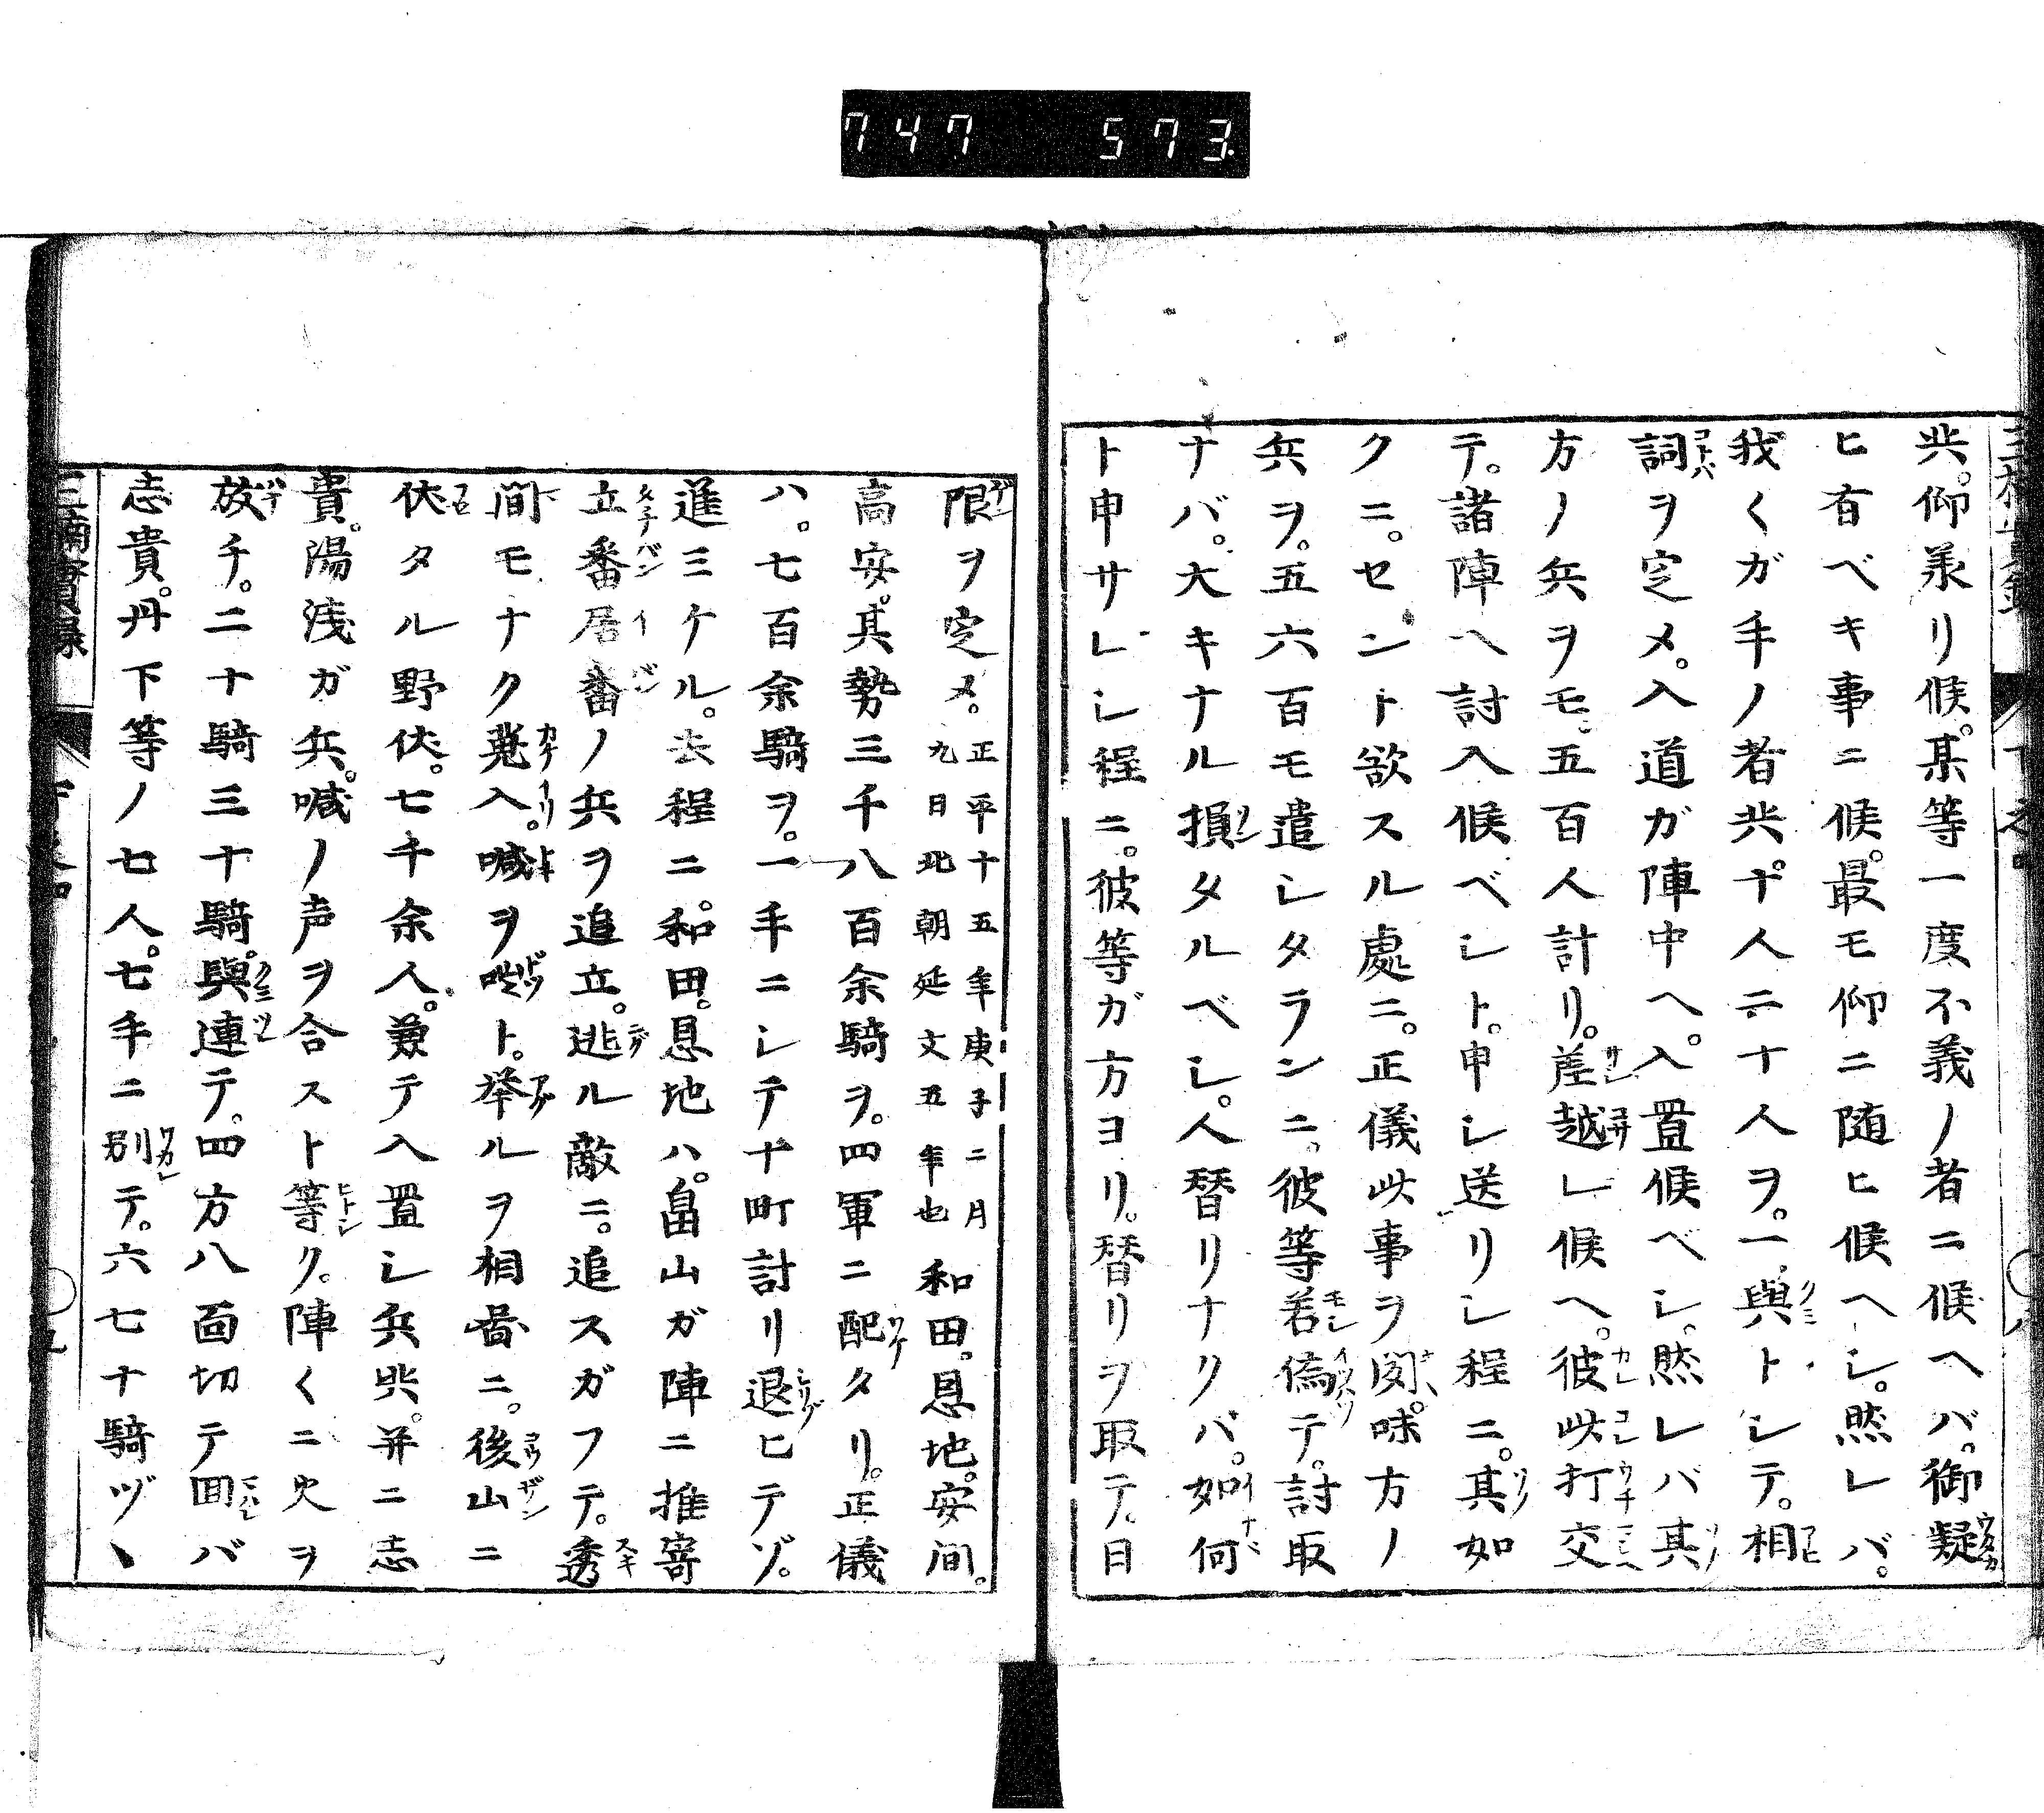 747 573
共。仰羕リ候。某等一度不義ノ者ニ候ヘバ。御疑
ヒ有ベキ事ニ候。最モ仰ニ随ヒ候ヘシ。然レバ。
我〱ガ手ノ者共。十人二十人ヲ。一與トシテ。相
詞ヲ定メ。入道ガ陣中ヘ。入置候ベシ。然レバ其
方ノ兵ヲモ。五百人計リ。差越シ候ヘ。彼此打交
テ。諸陣ヘ討入候ベシト。申シ送リシ程ニ。其如
クニ。セント欲スル處ニ。正儀此事ヲ聞。味方ノ
兵ヲ。五六百モ遣シタランニ。彼等若偽テ。討取
ナバ。大キナル損タルベシ。人替リナクバ。如何
ト申サレシ程ニ。彼等ガ方ヨリ。替リヲ取テ。日
限ヲ定メ。正平十五年庚子二月九日北朝延文五年也和田。恩地。安間。
高安。其勢三千八百余騎ヲ。四軍ニ配タリ。正儀
ハ。七百余騎ヲ。一手ニシテ十町計リ退ヒテゾ。
進ミケル。去程ニ。和田。恩地ハ。畠山ガ陣ニ推寄
立番居番ノ兵ヲ追立。逃ル敵ニ。追スガフテ。透
間モナク発入。喊ヲ咄ト。挙ルヲ相圖ニ。後山ニ
伏タル野伏。七千余人。兼テ入置シ兵共。并ニ志
貴。陽淺ガ兵。喊ノ声ヲ合スト等ク。陣〱ニ火ヲ
放チ。二十騎三十騎。與連テ。四方八面切テ囬バ
志貴。丹下等ノ七人。七手ニ別テ。六七十騎ヅヽ